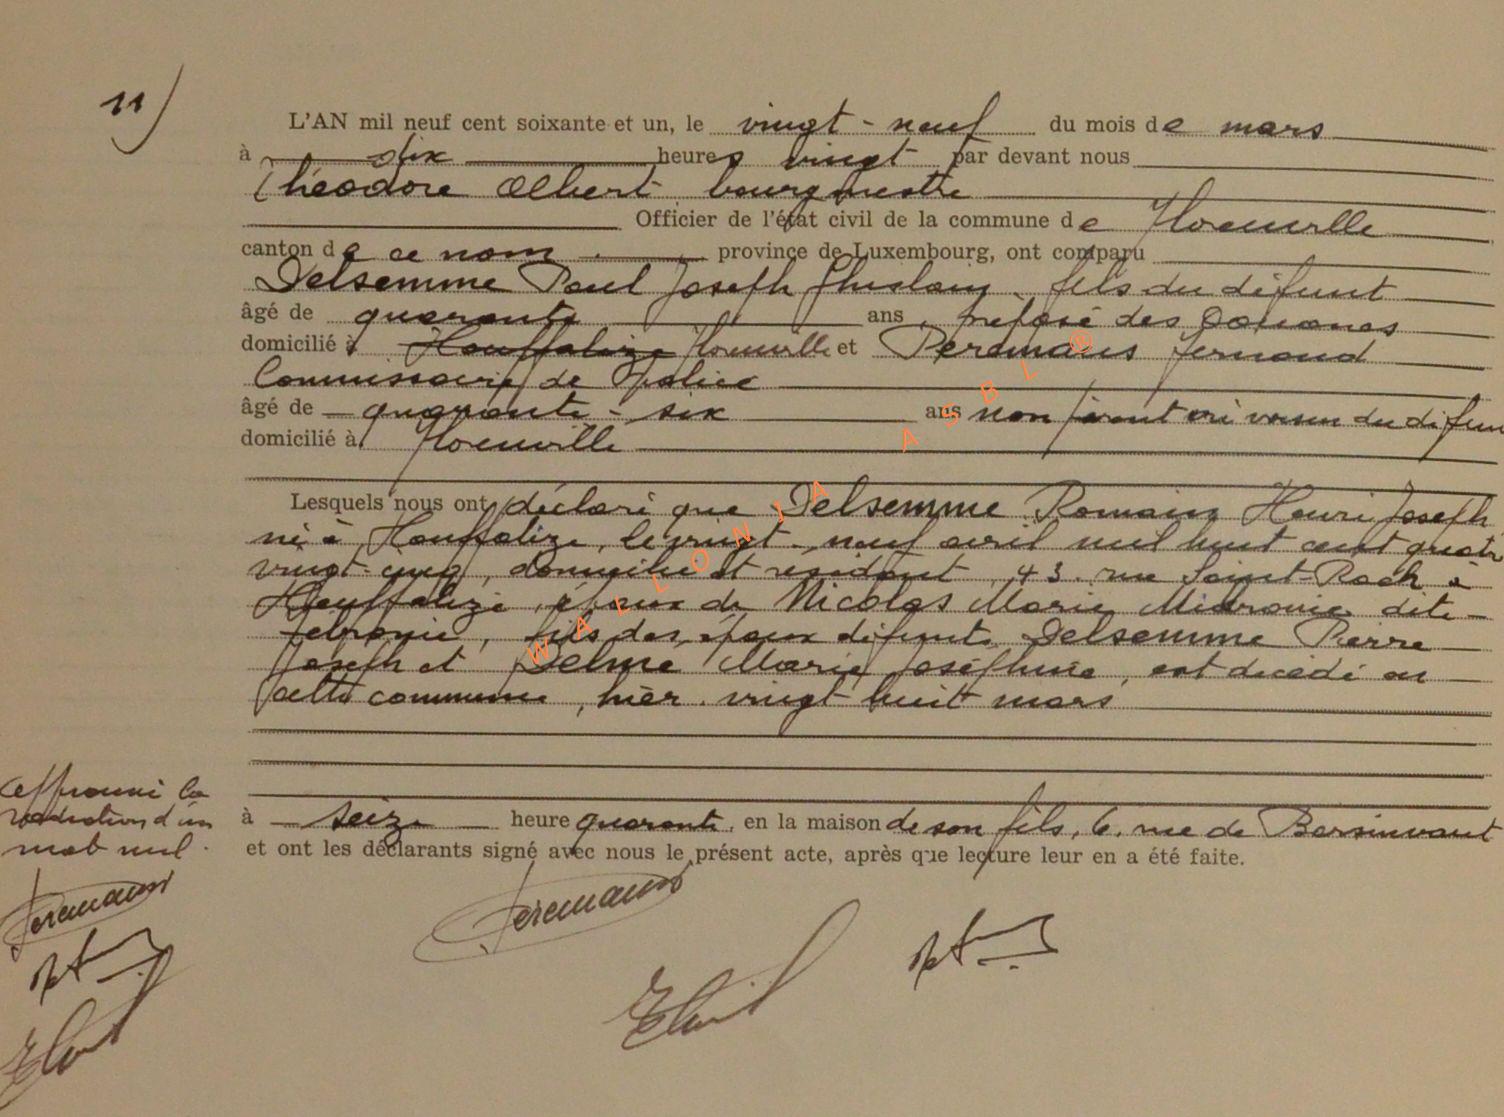 11)
L'AN mil neuf cent soixante et un, le vingt-neuf du mois de mars
à dix heures vingt par devant nous
Théodore Albert bourgmestre
Officier de l'état civil de la commune de
canton de ce nom province de Luxembourg, ont comparu
Delsemme Paul Joseph Ghislain, fils du défunt
âgé de quarante ans, préposé des Douanes
domicilié à Houffalize et Peremans fernand
Commissaire de Police
âgé de quarante-six ans non parent ni voisin du défun
domicilié à
Lesquels nous ont déclaré que Delsemme Romain Henri Joseph
né à Houffalize, le vingt-neuf avril mil huit cent quatre
vingt-cinq, domicilié et résidant, 43 rue Saint-Roch à
Houffalize, époux de Nicolas Marie dite
febronie, fils des époux défunts Delsemme Pierre
Joseph et Delmé Marie Joséphine, est décédé en
cette commune, hier vingt-huit mars
à seize heure quarante, en la maison de son fils, 6, rue de Bersinvaut
et ont les déclarants signé avec nous le présent acte, après que lecture leur en a été faite.
Approuvé la
radiation d'un
mot nul.
Peremans
Peremans
WALLONIA ASBL ®